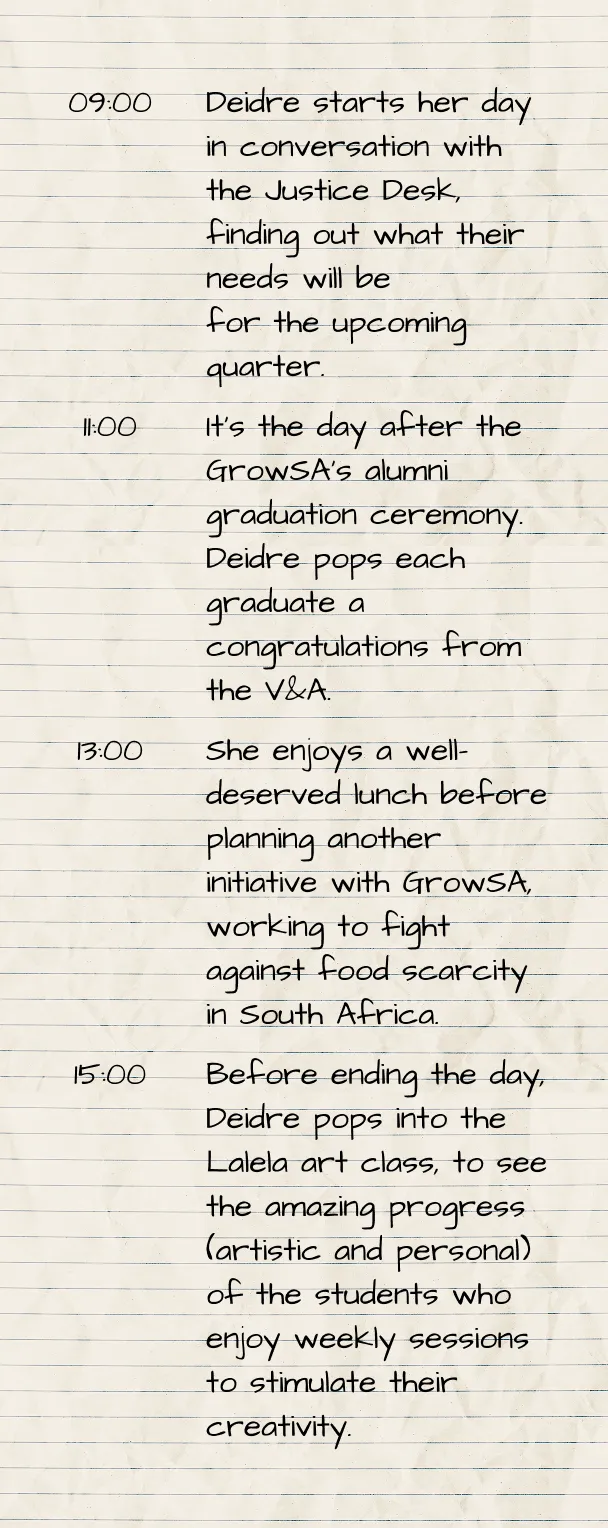 09:00 Deidre starts her day
in conversation with
the Justice Desk,
finding out what their
needs will be
for the upcoming
quarter.
11:00 It's the day after the
GrowSA's alumni
graduation ceremony.
Deidre pops each
graduate a
congratulations from
the V&A.
13:00 She enjoys a well-
deserved lunch before
planning another
initiative with GrowSA,
working to fight
against food scarcity
in South Africa.
15:00 Before ending the day,
Deidre pops into the
Lalela art class, to see
the amazing progress
(artistic and personal)
of the students who
enjoy weekly sessions
to stimulate their
creativity.